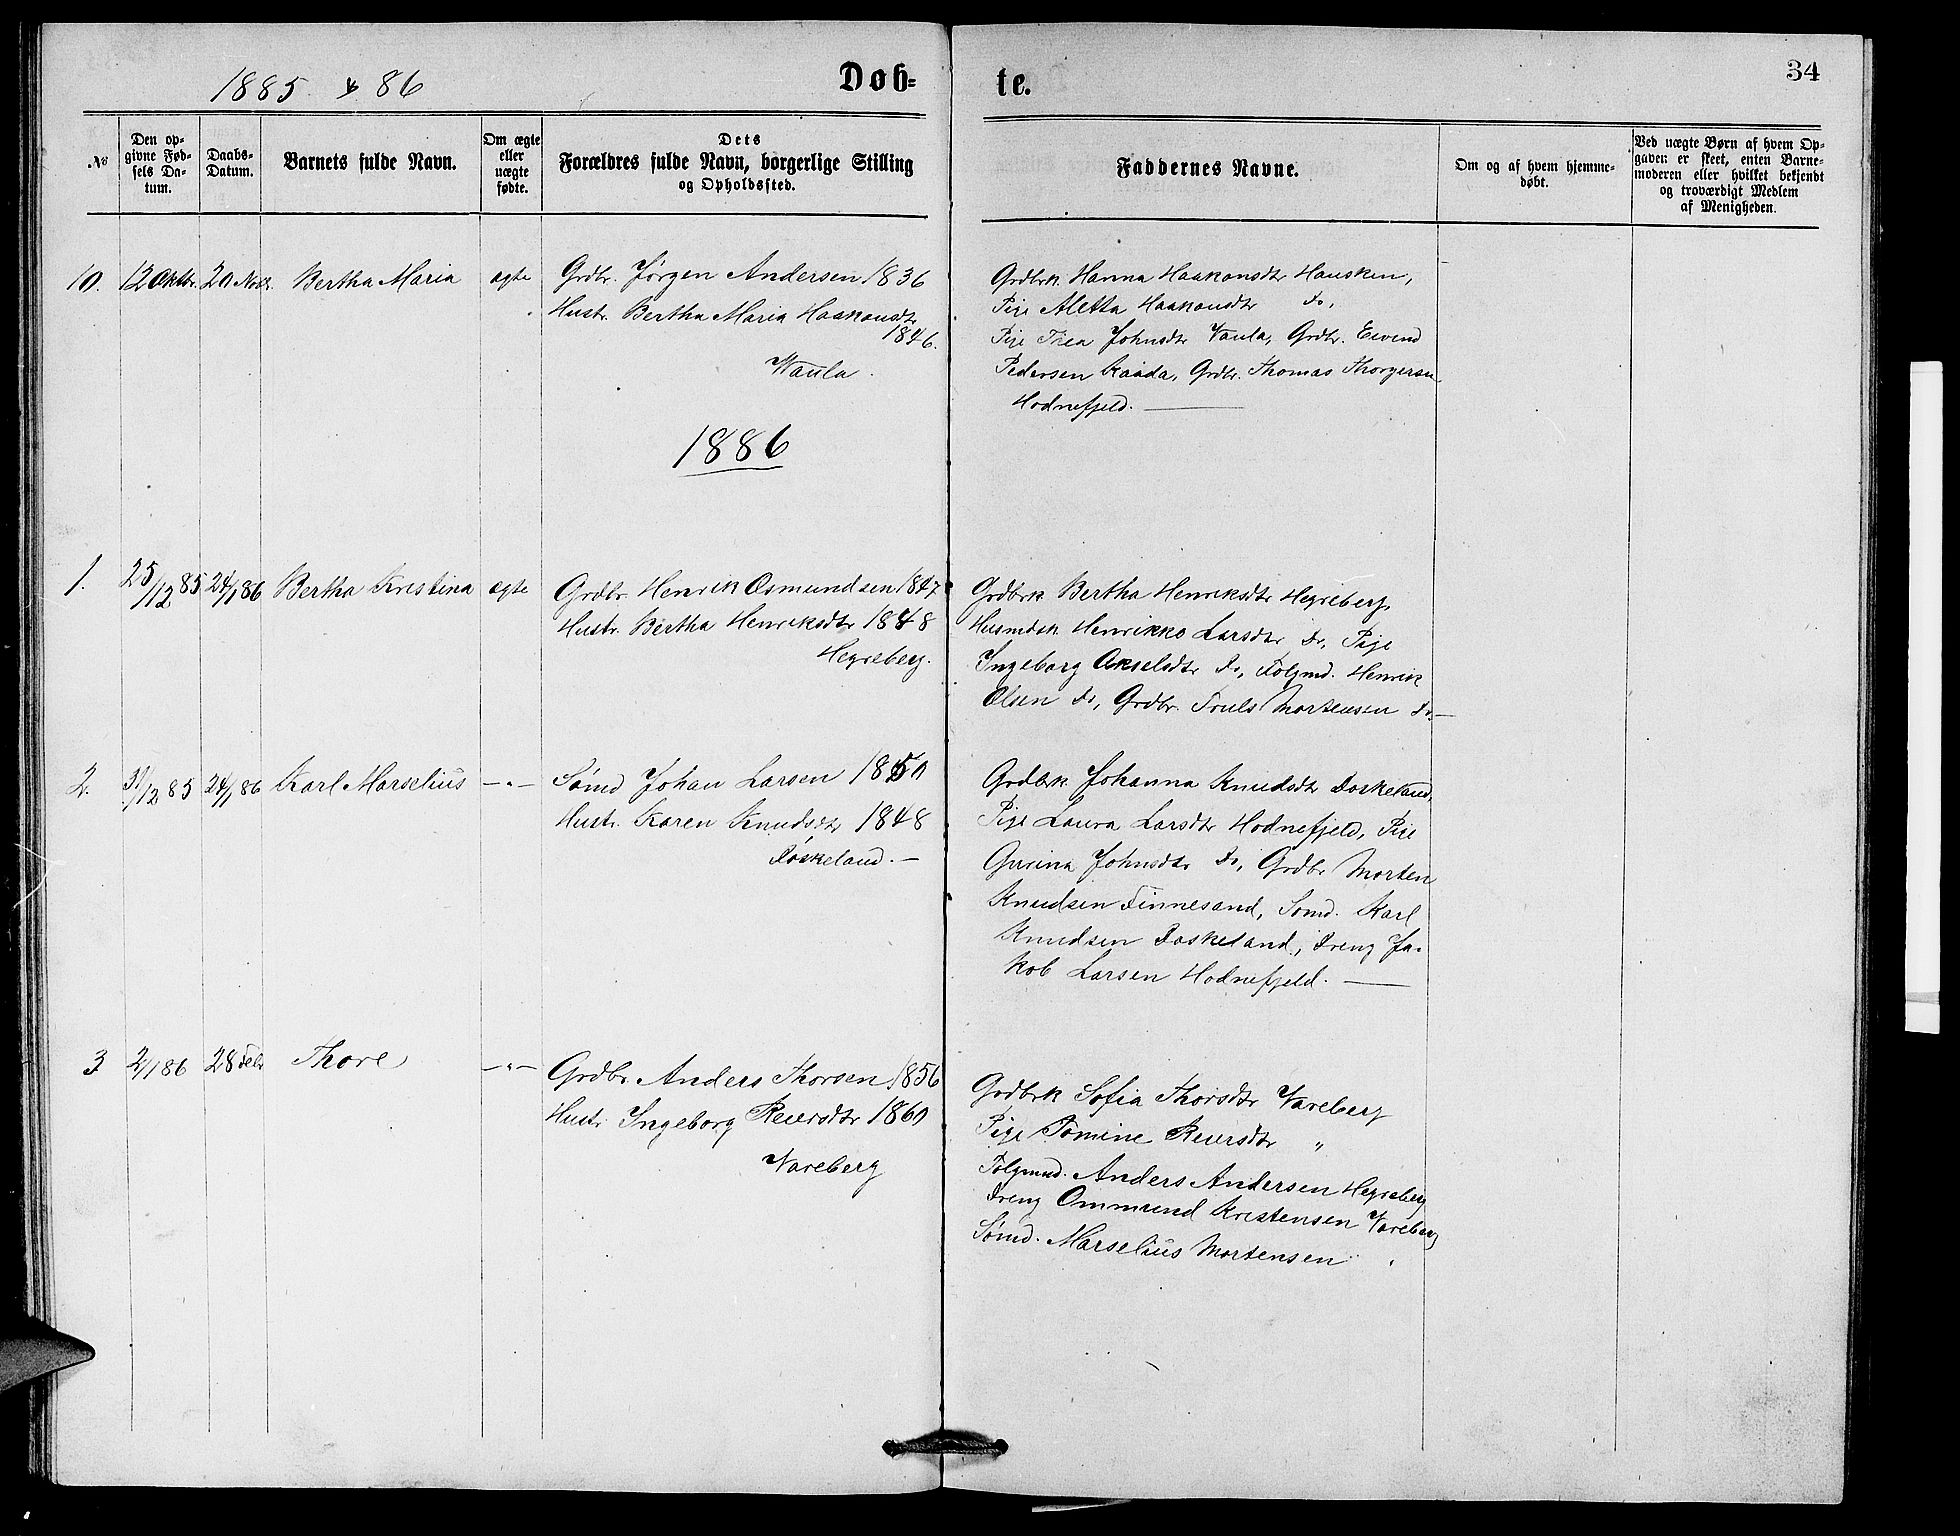 1885 & 86
Døb-
te.
34
No
Den op-
givne Fød-
sels Da-
tum.
Daabs-
Datum.
Barnets fulde Navn.
Om ægte
eller
uægte
fødte.
Dets
Forældres fulde Navn, borgerlige Stilling
og Opholdssted.
Faddernes Navne.
Om og af hvem hjemme-
døbt.
Ved uægte Børn af hvem Op-
gaven er skeet, enten Barne-
moderen eller hvilket bekjendt
og troværdigt Medlem
af Menigheden.
10. 12 Oktbr. 20 Novbr. Bertha Maria ægte
Grdbr. Jørgen Andersen 1836
Hustr. Bertha Maria Haakonsdtr
1846.
Waula.
Grdbrk. Hanna Haakonsdtr Hausken,
Pige Aletta Haakonsdtr Do,
Pige Thea Johnsdtr Vaula, Grdbr. Eivend
Pedersen Kaada, Grdbr. Thomas Thorgersen
Hodnefjeld. —
1886
1. 25/12 85 24/1 86 Bertha Kristina ægte
Grdbr. Henrik Osmundsen 1847
Hustr. Bertha Henriksdtr 1848
Hegreberg.
Grdbrk. Bertha Henriksdtr Hegreberg,
Husmdsk. Henrikke Larsdtr Do, Pige
Ingeborg Akselsdtr Do, Folgmd. Henrik
Olsen Do, Grdbr. Truls Mortensen Do —
2. 31/12 85 24/1 86 Karl Marselius —"—
Sømd Johan Larsen 1850
Hustr. Karen Knudsdtr 1848
Døskeland. —
Grdbrk. Johanna Knudsdtr Doskeland,
Pige Laura Larsdtr Hodnefjeld, Pige
Gurina Johnsdtr Do, Grdbr Morten
Knudsen Finnesand, Somd. Karl
Knudsen Doskeland, Dreng Ja-
kob Larsen Hodnefjeld. —
3 2/1 86 28 Febr Thore —"—
Grdbr. Anders Thorsen 1856
Hustr. Ingeborg Reiersdtr 1860
Vareberg
Grdbrk Sofia Thorsdtr Vareberg
Pige Tomine Reiersdtr "
Folgmd. Anders Andersen Hegreberg
Dreng Ommund Kristensen Vareberg
Sømd. Marselius Mortensen "